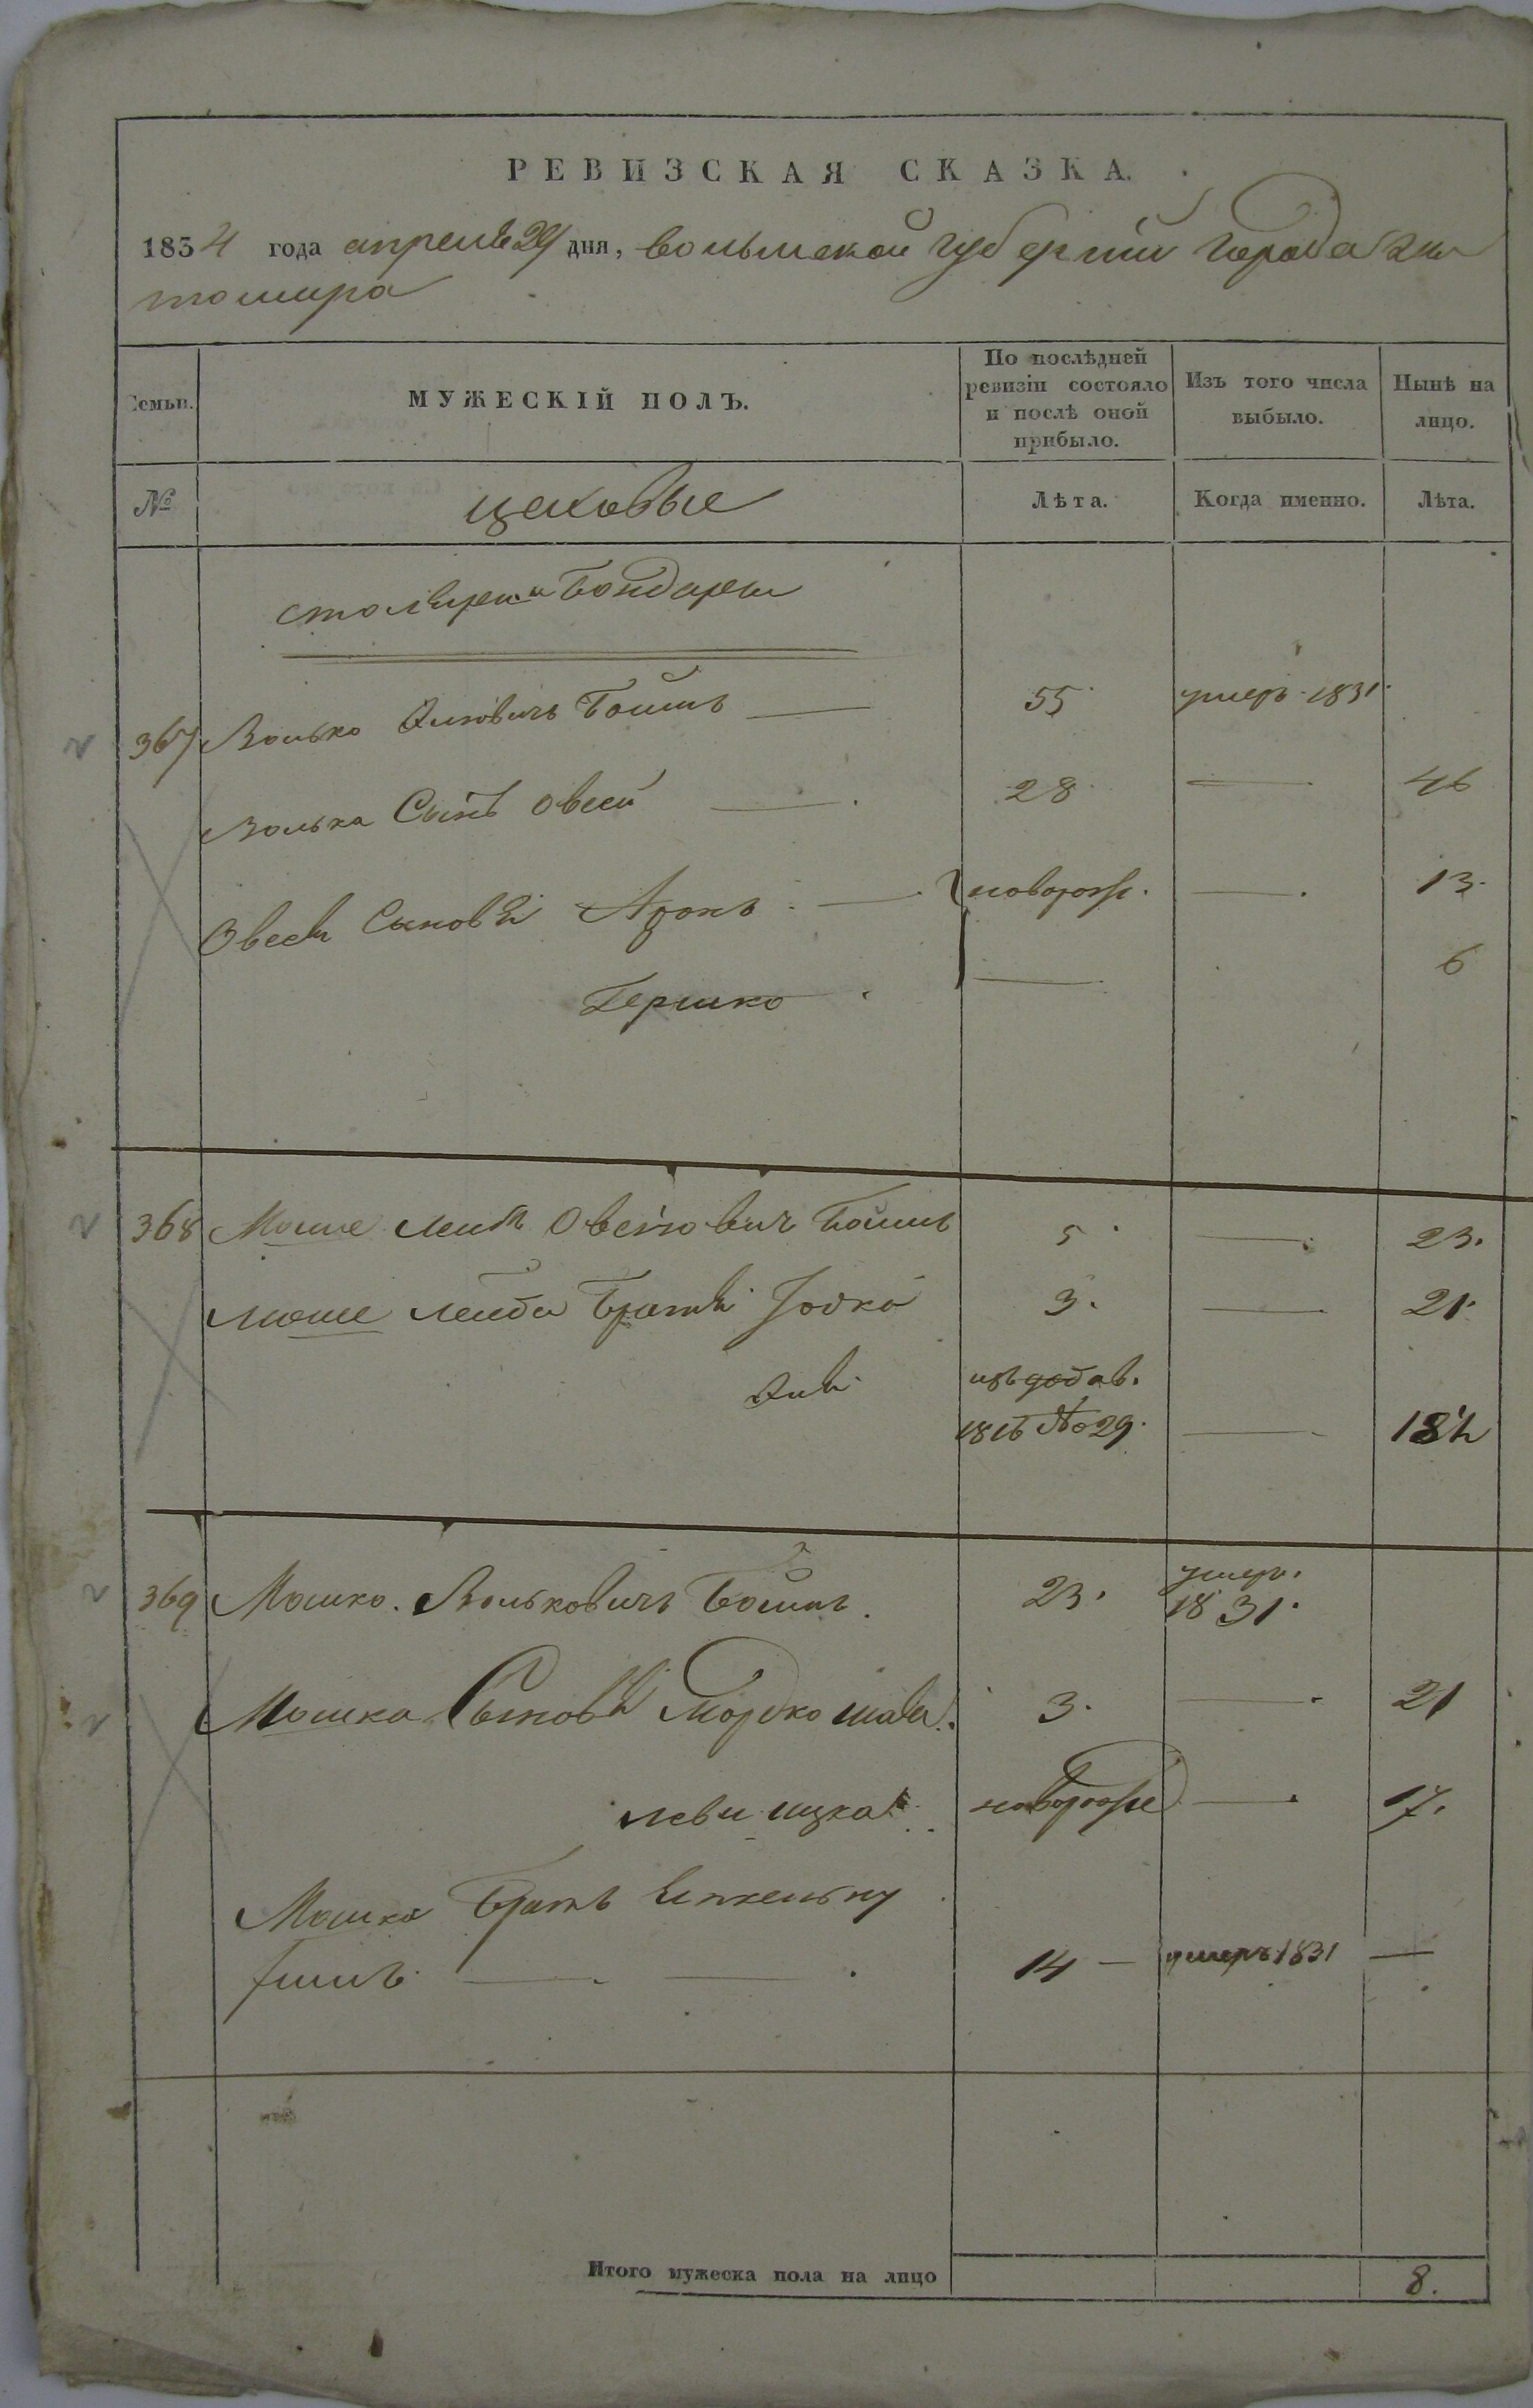 РЕВИЗСКАЯ СКАЗКА.
1834 года апреля 29 дня, волынской губернии города Жи
томира
Семьи.
МУЖЕСКІЙ ПОЛЪ.
По послѣдней
ревизіи состояло
и послѣ оной
прибыло.
Изъ того числа
выбыло.
Нынѣ на
лицо.
№
цеховые
Лѣта.
Когда именно.
Лѣта.
столяры и Бондары
367 Волько Бойшъ — 55 умеръ 1831
Волька Сынъ Овсей — 28 — 46
Овсея Сыновья Аронъ — новорож. — 13
Гершко — 6
368 Моше Лейбъ Овсіович Бойшъ 5 — 23.
Моше Лейба Братья Іоско 3. — 21
из добав.
1816 № 29. — 18½
369 Мошко Вольковичъ Бойшъ. 23. умер.
1831.
Мошка Сыновья Мордко 3. — 21
Леви ицка новорож — 17.
Мошка Братъ
14 — умеръ 1831 —
Итого мужеска пола на лицо 8.